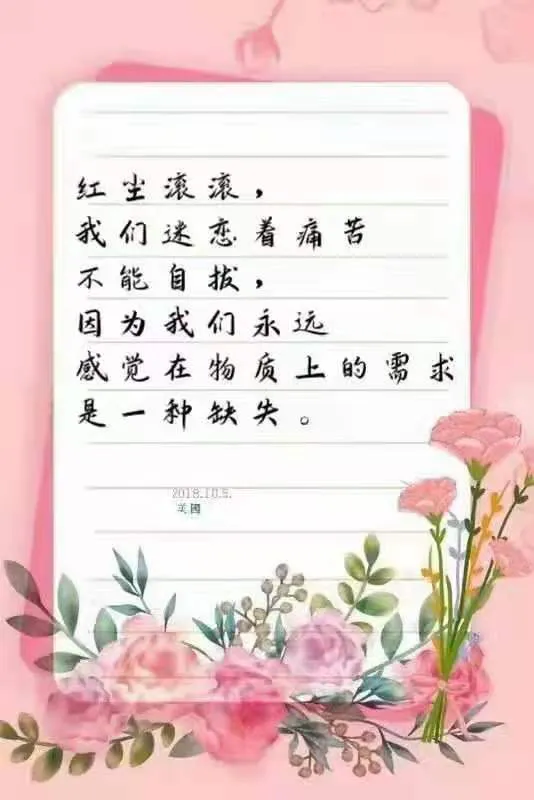 红尘滚滚，
我们迷恋着痛苦
不能自拔，
因为我们永远
感觉在物质上的需求
是一种缺失。
2018.10.5.
美國